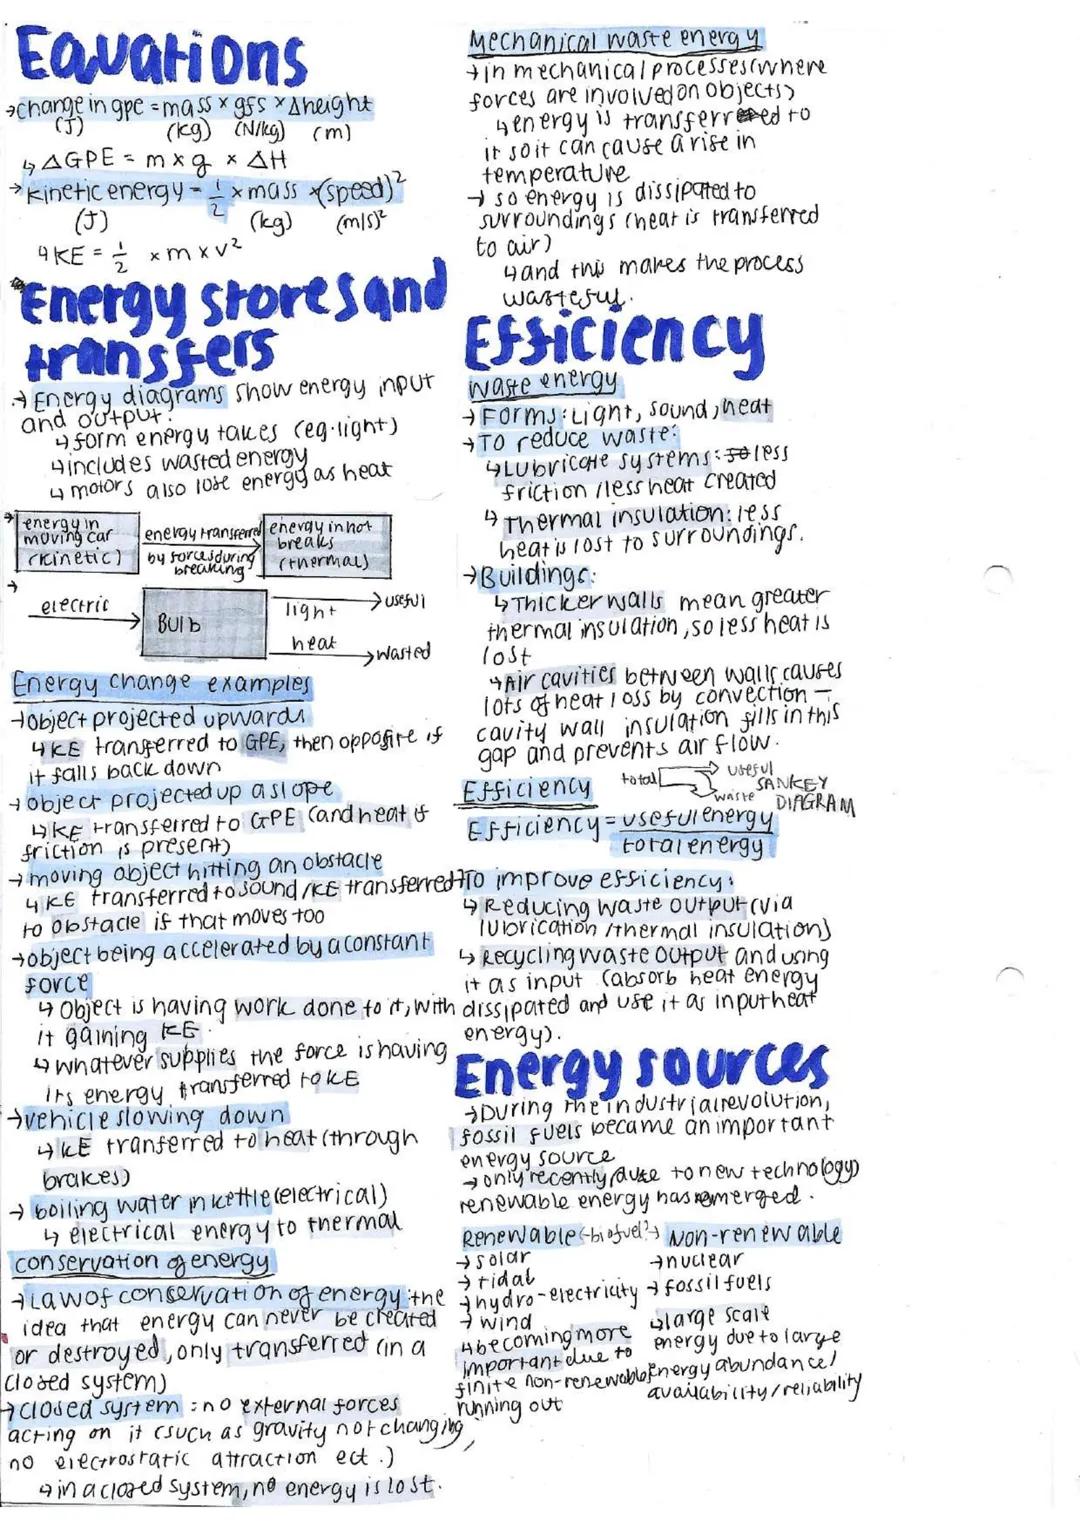 Equations
→change in gpe = mass x gfs x Δheight
(J) (kg) (N/kg) (m)
↳ ΔGPE = m x g x ΔH
→ kinetic energy = 1/2 x mass x (speed)²
(J) (kg) (m/s)²
↳ KE = 1/2 x m x v²
Energy stores and
transfers
→ Energy diagrams show energy input
and output.
↳ form energy takes (eg. light)
↳ includes wasted energy
↳ motors also lose energy as heat
→ energy in
moving car
(kinetic)
energy transferred
by forces during
breaking
energy in hot
breaks
(thermal)
→
electric
Bulb
light → useful
heat → wasted
Energy change examples
→object projected upwards
↳ KE transferred to GPE, then opposite if
it falls back down
→ object projected up a slope
↳ KE transferred to GPE (and heat if
friction is present)
→ moving object hitting an obstacle
↳ KE transferred to sound / KE transferred
to obstacle if that moves too
→object being accelerated by a constant
force
↳ Object is having work done to it, with
it gaining KE.
↳ whatever supplies the force is having
its energy transferred to KE
→vehicle slowing down
↳ KE tranferred to heat (through
brakes)
→ boiling water in kettle (electrical)
↳ electrical energy to thermal
conservation of energy
→ Law of conservation of energy: the
idea that energy can never be created
or destroyed, only transferred (in a
closed system)
→ closed system : no external forces
acting on it (such as gravity not changing,
no electrostatic attraction ect.)
↳ in a closed system, no energy is lost.
Mechanical waste energy
→in mechanical processes (where
forces are involved on objects)
↳ energy is transferred to
it so it can cause a rise in
temperature
→ so energy is dissipated to
surroundings (heat is transferred
to air)
↳ and this makes the process
wasteful.
Efficiency
waste energy
→ Forms: Light, sound, heat
→ To reduce waste:
↳ Lubricate systems: less
friction / less heat created
↳ Thermal insulation: less
heat is lost to surroundings.
→ Buildings:
↳ Thicker walls mean greater
thermal insulation, so less heat is
lost
↳ Air cavities between walls causes
lots of heat loss by convection –
cavity wall insulation fills in this
gap and prevents air flow.
Efficiency
total → useful
waste
SANKEY
DIAGRAM
Efficiency = useful energy
total energy
→To improve efficiency:
↳ Reducing waste output (via
lubrication / thermal insulation)
↳ Recycling waste output and using
it as input (absorb heat energy
dissipated and use it as input heat
energy).
Energy sources
→During the industrial revolution,
fossil fuels became an important
energy source
→ only recently, due to new technology,
renewable energy has emerged.
Renewable (-biofuel?)
→ solar
→ tidal
→ hydro-electricity
→ wind
↳ becoming more
important due to
finite non-renewable
running out
→ Non-renewable
→nuclear
→ fossil fuels
↳ large scale
energy due to large
energy abundance/
availability / reliability